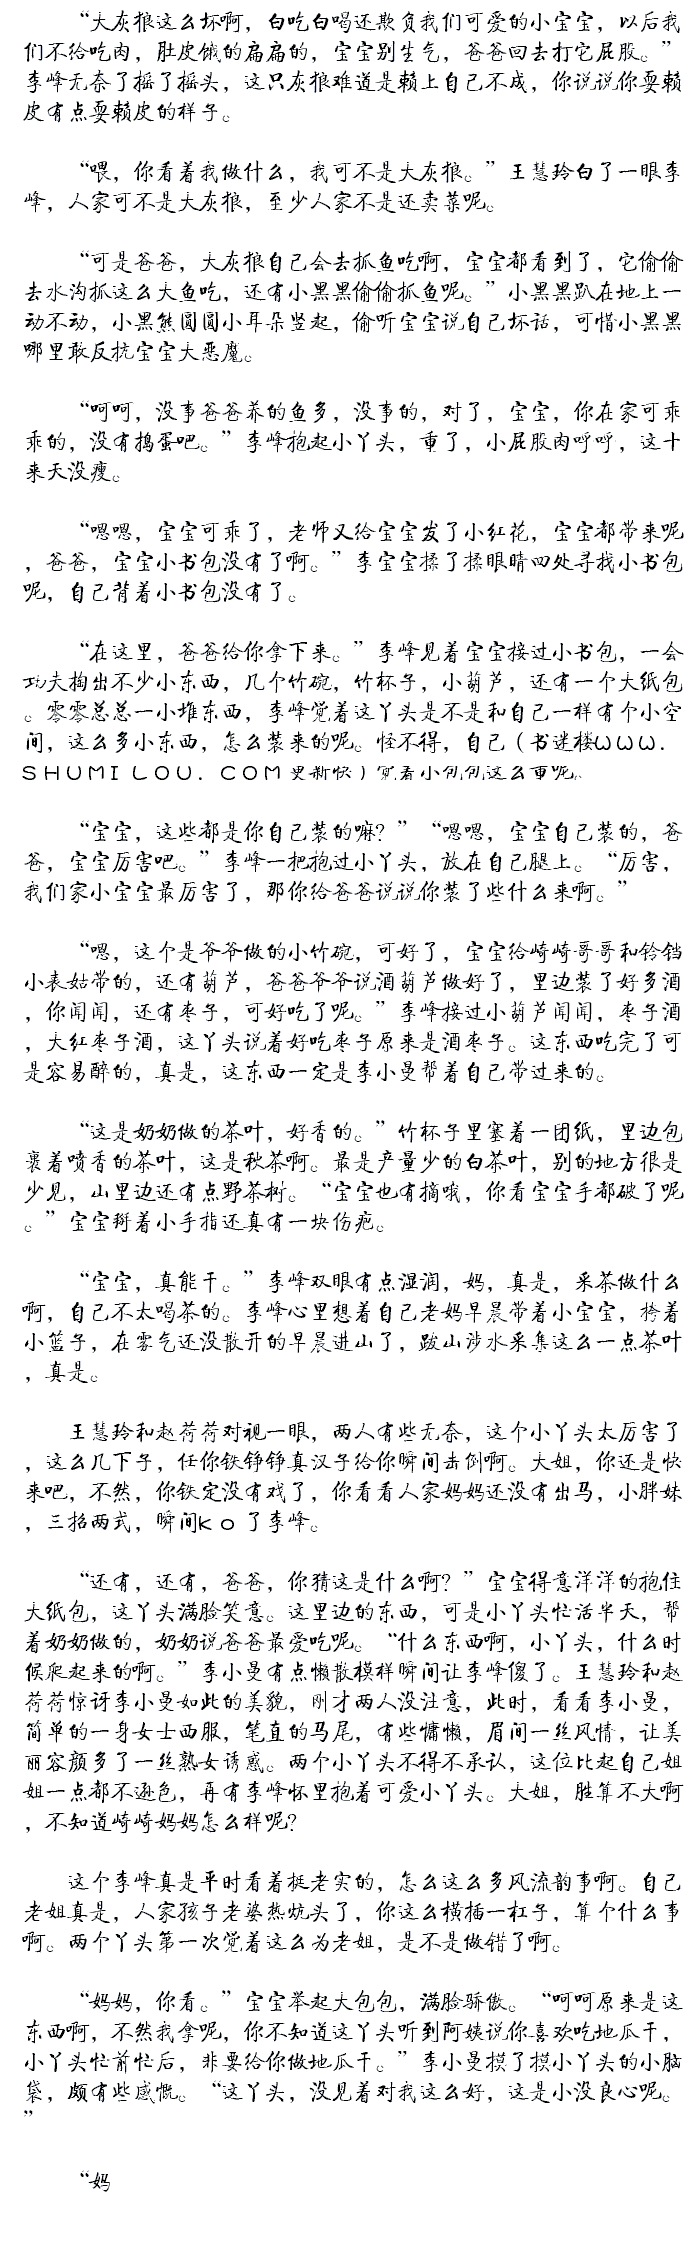 “大灰狼这么坏啊，白吃白喝还欺负我们可爱的小宝宝，以后我
们不给吃肉，肚皮饿的扁扁的，宝宝别生气，爸爸回去打它屁股。”
李峰无奈了摇了摇头，这只灰狼难道是赖上自己不成，你说说你耍赖
皮有点耍赖皮的样子。
“喂，你看着我做什么，我可不是大灰狼。”王慧玲白了一眼李
峰，人家可不是大灰狼，至少人家不是还卖菜呢。
“可是爸爸，大灰狼自己会去抓鱼吃啊，宝宝都看到了，它偷偷
去水沟抓这么大鱼吃，还有小黑黑偷偷抓鱼呢。”小黑黑趴在地上一
动不动，小黑熊圆圆小耳朵竖起，偷听宝宝说自己坏话，可惜小黑黑
哪里敢反抗宝宝大恶魔。
“呵呵，没事爸爸养的鱼多，没事的，对了，宝宝，你在家可乖
乖的，没有捣蛋吧。”李峰抱起小丫头，重了，小屁股肉呼呼，这十
来天没瘦。
“嗯嗯，宝宝可乖了，老师又给宝宝发了小红花，宝宝都带来呢
，爸爸，宝宝小书包没有了啊。”李宝宝揉了揉眼睛四处寻找小书包
呢，自己背着小书包没有了。
“在这里，爸爸给你拿下来。”李峰见着宝宝接过小书包，一会
功夫掏出不少小东西，几个竹碗，竹杯子，小葫芦，还有一个大纸包
。零零总总一小堆东西，李峰觉着这丫头是不是和自己一样有个小空
间，这么多小东西，怎么装来的呢。怪不得，自己（书迷楼WWW．
SHUMILOU．COM更新快）觉着小包包这么重呢。
“宝宝，这些都是你自己装的嘛？”“嗯嗯，宝宝自己装的，爸
爸，宝宝厉害吧。”李峰一把抱过小丫头，放在自己腿上。“厉害，
我们家小宝宝最厉害了，那你给爸爸说说你装了些什么来啊。”
“嗯，这个是爷爷做的小竹碗，可好了，宝宝给崎崎哥哥和铃铛
小表姑带的，还有葫芦，爸爸爷爷说酒葫芦做好了，里边装了好多酒
，你闻闻，还有枣子，可好吃了呢。”李峰接过小葫芦闻闻，枣子酒
，大红枣子酒，这丫头说着好吃枣子原来是酒枣子。这东西吃完了可
是容易醉的，真是，这东西一定是李小曼帮着自己带过来的。
“这是奶奶做的茶叶，好香的。”竹杯子里塞着一团纸，里边包
裹着喷香的茶叶，这是秋茶啊。最是产量少的白茶叶，别的地方很是
少见，山里边还有点野茶树。“宝宝也有摘哦，你看宝宝手都破了呢
。”宝宝掰着小手指还真有一块伤疤。
“宝宝，真能干。”李峰双眼有点湿润，妈，真是，采茶做什么
啊，自己不太喝茶的。李峰心里想着自己老妈早晨带着小宝宝，挎着
小篮子，在雾气还没散开的早晨进山了，跋山涉水采集这么一点茶叶
，真是。
王慧玲和赵荷荷对视一眼，两人有些无奈，这个小丫头太厉害了
，这么几下子，任你铁铮铮真汉子给你瞬间击倒啊。大姐，你还是快
来吧，不然，你铁定没有戏了，你看看人家妈妈还没有出马，小胖妹
，三招两式，瞬间ＫＯ了李峰。
“还有，还有，爸爸，你猜这是什么啊？”宝宝得意洋洋的抱住
大纸包，这丫头满脸笑意。这里边的东西，可是小丫头忙活半天，帮
着奶奶做的，奶奶说爸爸最爱吃呢。“什么东西啊，小丫头，什么时
候爬起来的啊。”李小曼有点懒散模样瞬间让李峰傻了。王慧玲和赵
荷荷惊讶李小曼如此的美貌，刚才两人没注意，此时，看看李小曼，
简单的一身女士西服，笔直的马尾，有些慵懒，眉间一丝风情，让美
丽容颜多了一丝熟女诱惑。两个小丫头不得不承认，这位比起自己姐
姐一点都不逊色，再有李峰怀里抱着可爱小丫头。大姐，胜算不大啊
，不知道崎崎妈妈怎么样呢？
这个李峰真是平时看着挺老实的，怎么这么多风流韵事啊。自己
老姐真是，人家孩子老婆热炕头了，你这么横插一杠子，算个什么事
啊。两个丫头第一次觉着这么为老姐，是不是做错了啊。
“妈妈，你看。”宝宝举起大包包，满脸骄傲。“呵呵原来是这
东西啊，不然我拿呢，你不知道这丫头听到阿姨说你喜欢吃地瓜干，
小丫头忙前忙后，非要给你做地瓜干。”李小曼摸了摸小丫头的小脑
袋，颇有些感慨。“这丫头，没见着对我这么好，这是小没良心呢。
”
“妈